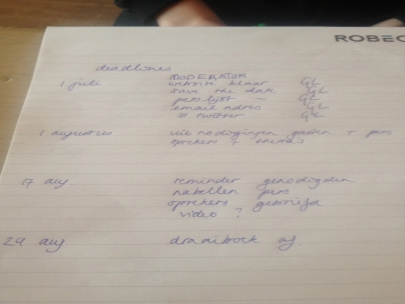 ROBEC
deadlines
MODERATOR
1 juli website klaar GL
save the date GL
perslijst — GL
email adres GL
twitter GL
1 augustus uitnodigingen gasten + pers
sprekers + thema's
17 aug reminder genodigden
nabellen pers
sprekers gebriefd
video ?
24 aug draaiboek af